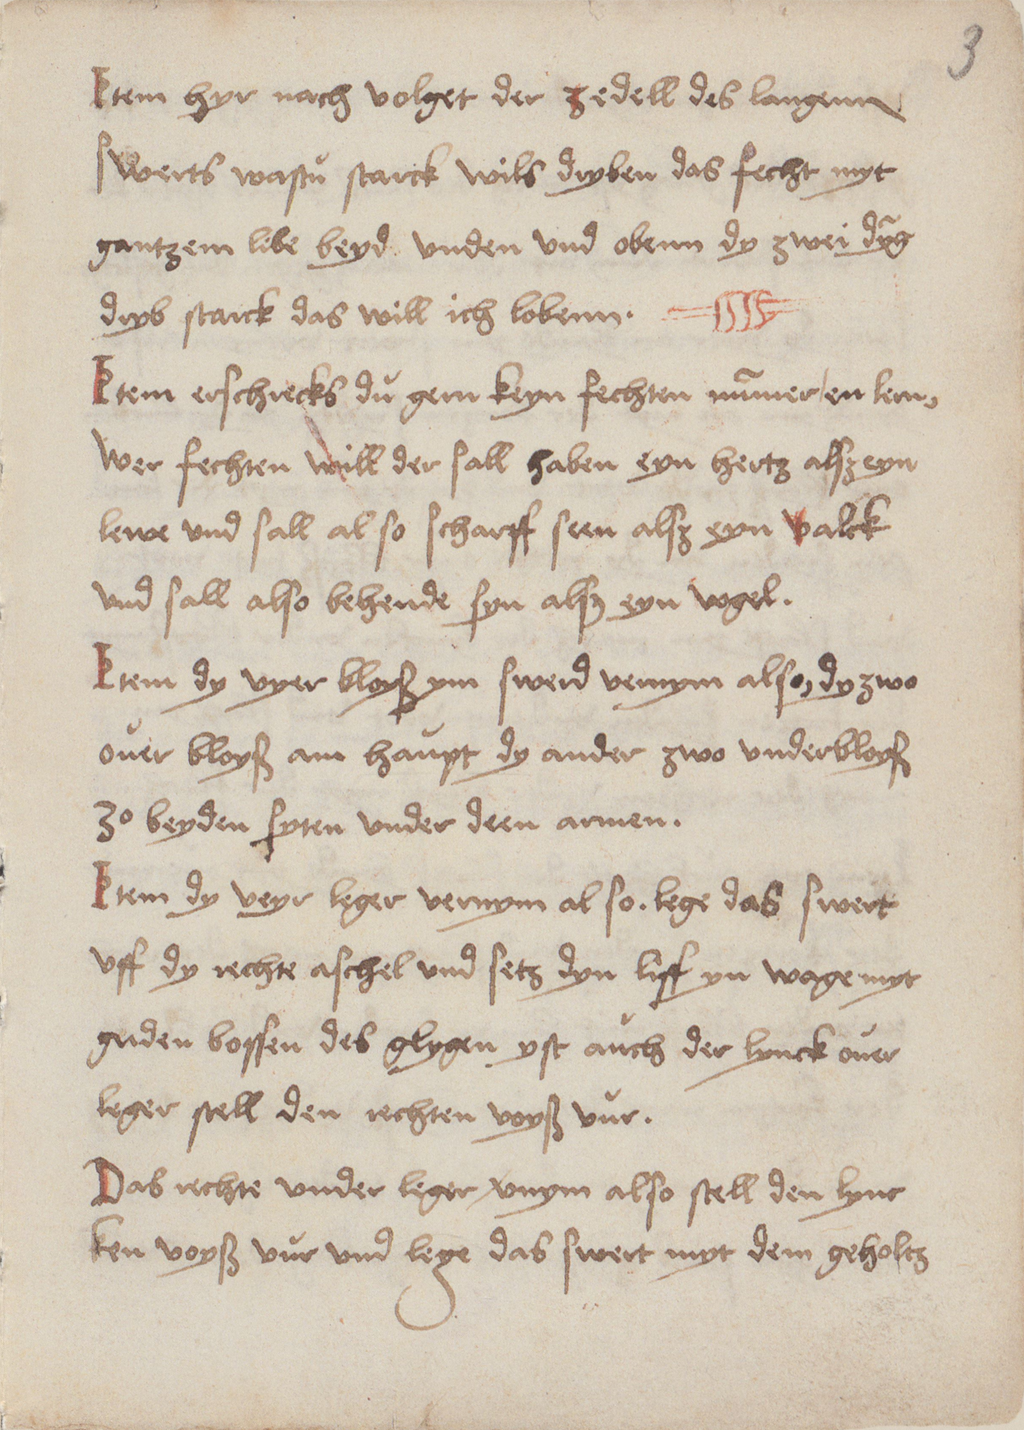 3
Item hyr nach volget der zedell des langenn
swerts wastu starck wils dryben das fecht myt
gantzem libe beyd unden und obenn dy zwei dỹg
dryb starck das will ich lobenn.
Item erschrecks dů gern keyn fechten nūmer en lern,
Wer fechten will der sall haben eyn hertz alsz eyn
lewe und sall al so scharff seen alsz eyn valck
und sall also behende syn alsz eyn vogel.
Item dy vyer bloyß ym swerd vernym also, dy zwo
ouer bloyß am haůpt dy ander zwo underbloyß
zo beyden syten under deen armen.
Item dy veyr leger vernym al so. lege das swert
uff dy rechte aschel und setz dyn liff yn wage myt
guden bossen des glygen yst aůch der lynck oůer
leger stell den rechten voyß vůr.
Das rechte under leger vnym also stell den lync
ken voyß vůr und lege das swert myt dem geholtz